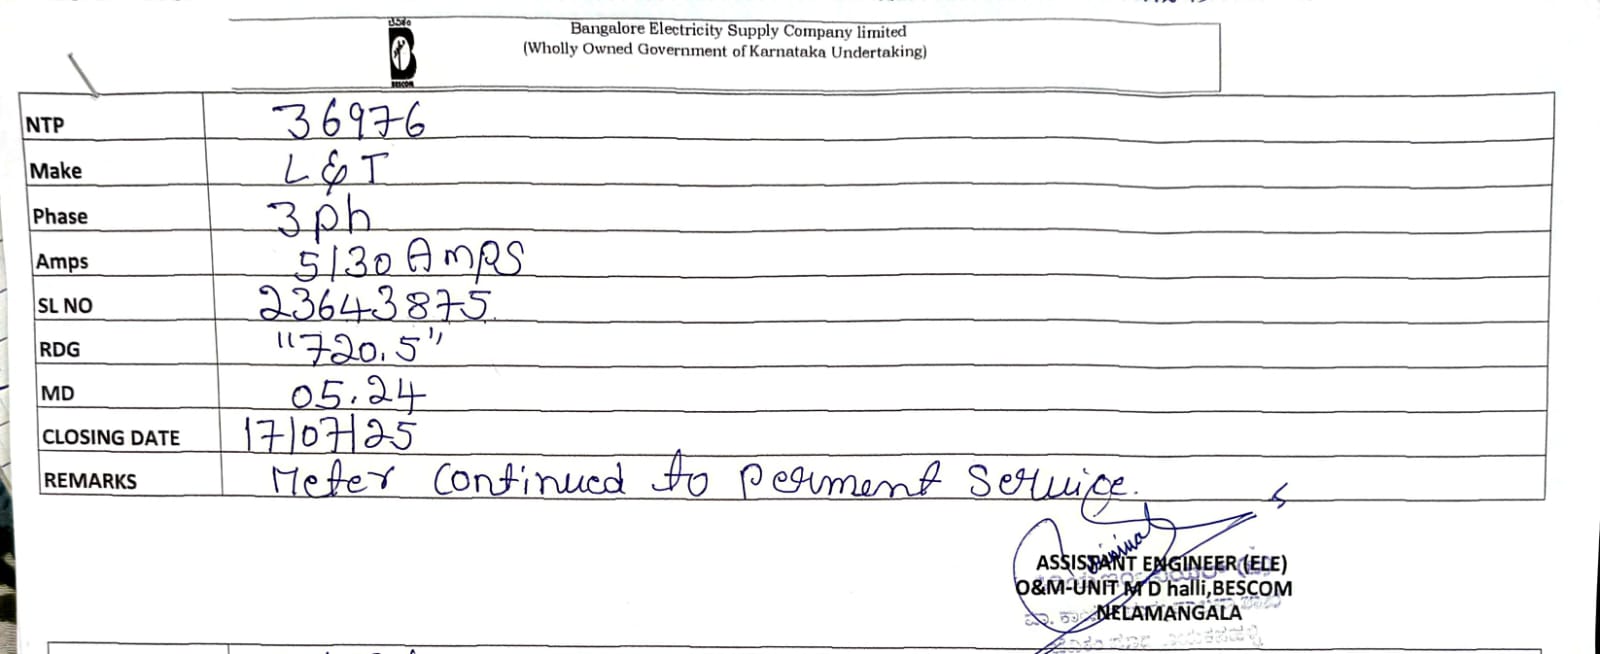 ಬೆವಿಕಂ
BESCOM
Bangalore Electricity Supply Company limited
(Wholly Owned Government of Karnataka Undertaking)
NTP 36976
Make L & T
Phase 3 ph
Amps 5/30 Amps
SL NO 23643875
RDG "720.5"
MD 05.24
CLOSING DATE 17/07/25
REMARKS Meter continued to perment service.
ASSISTANT ENGINEER (ELE)
O&M-UNIT M D halli,BESCOM
NELAMANGALA